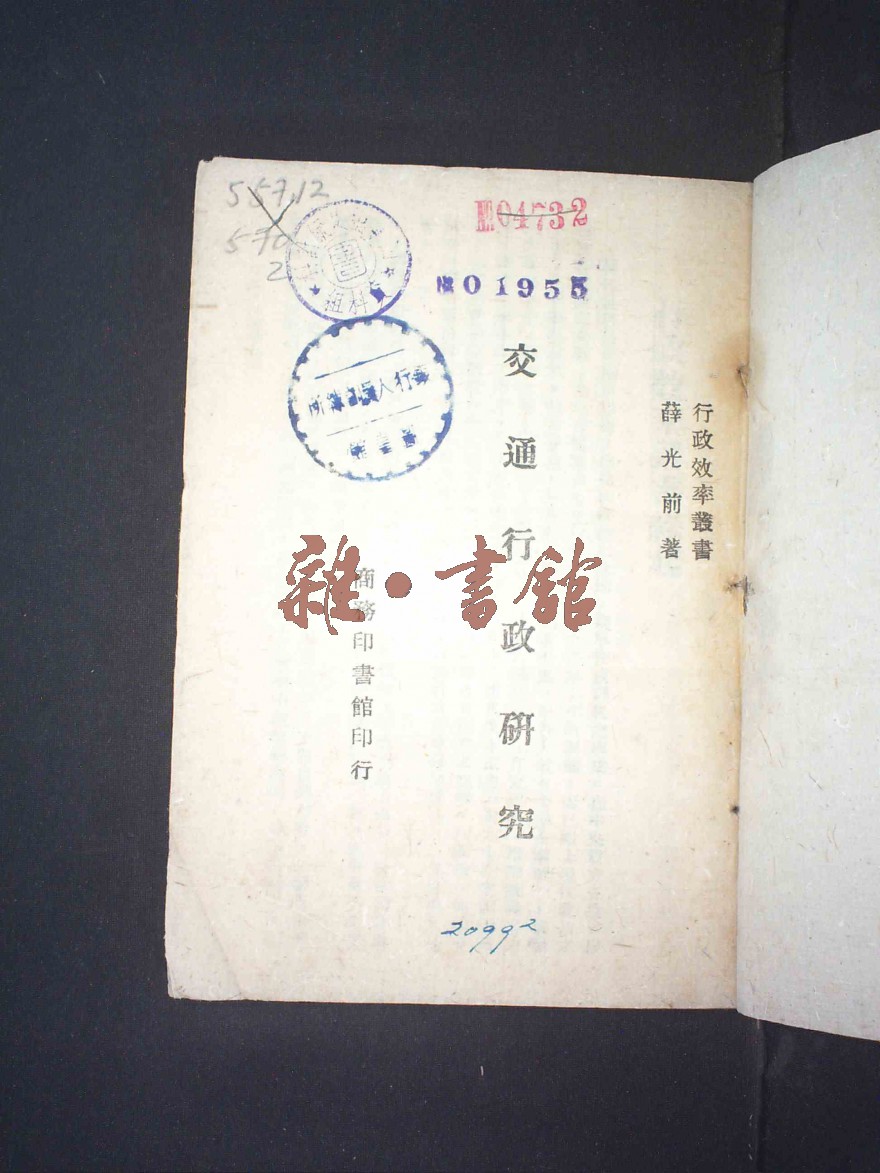 行政效率叢書
薛光前著
交通行政研究
商務印書館印行
雜·書館
04732
01955
557.12
570
2
20992